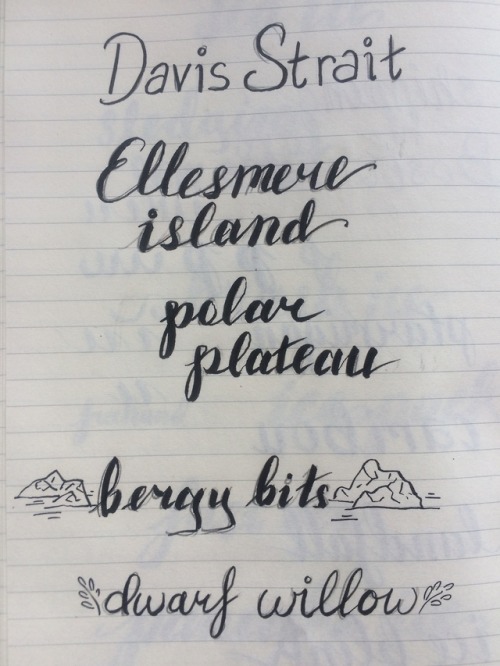 Davis Strait
Ellesmere
island
polar
plateau
bergy bits
dwarf willow